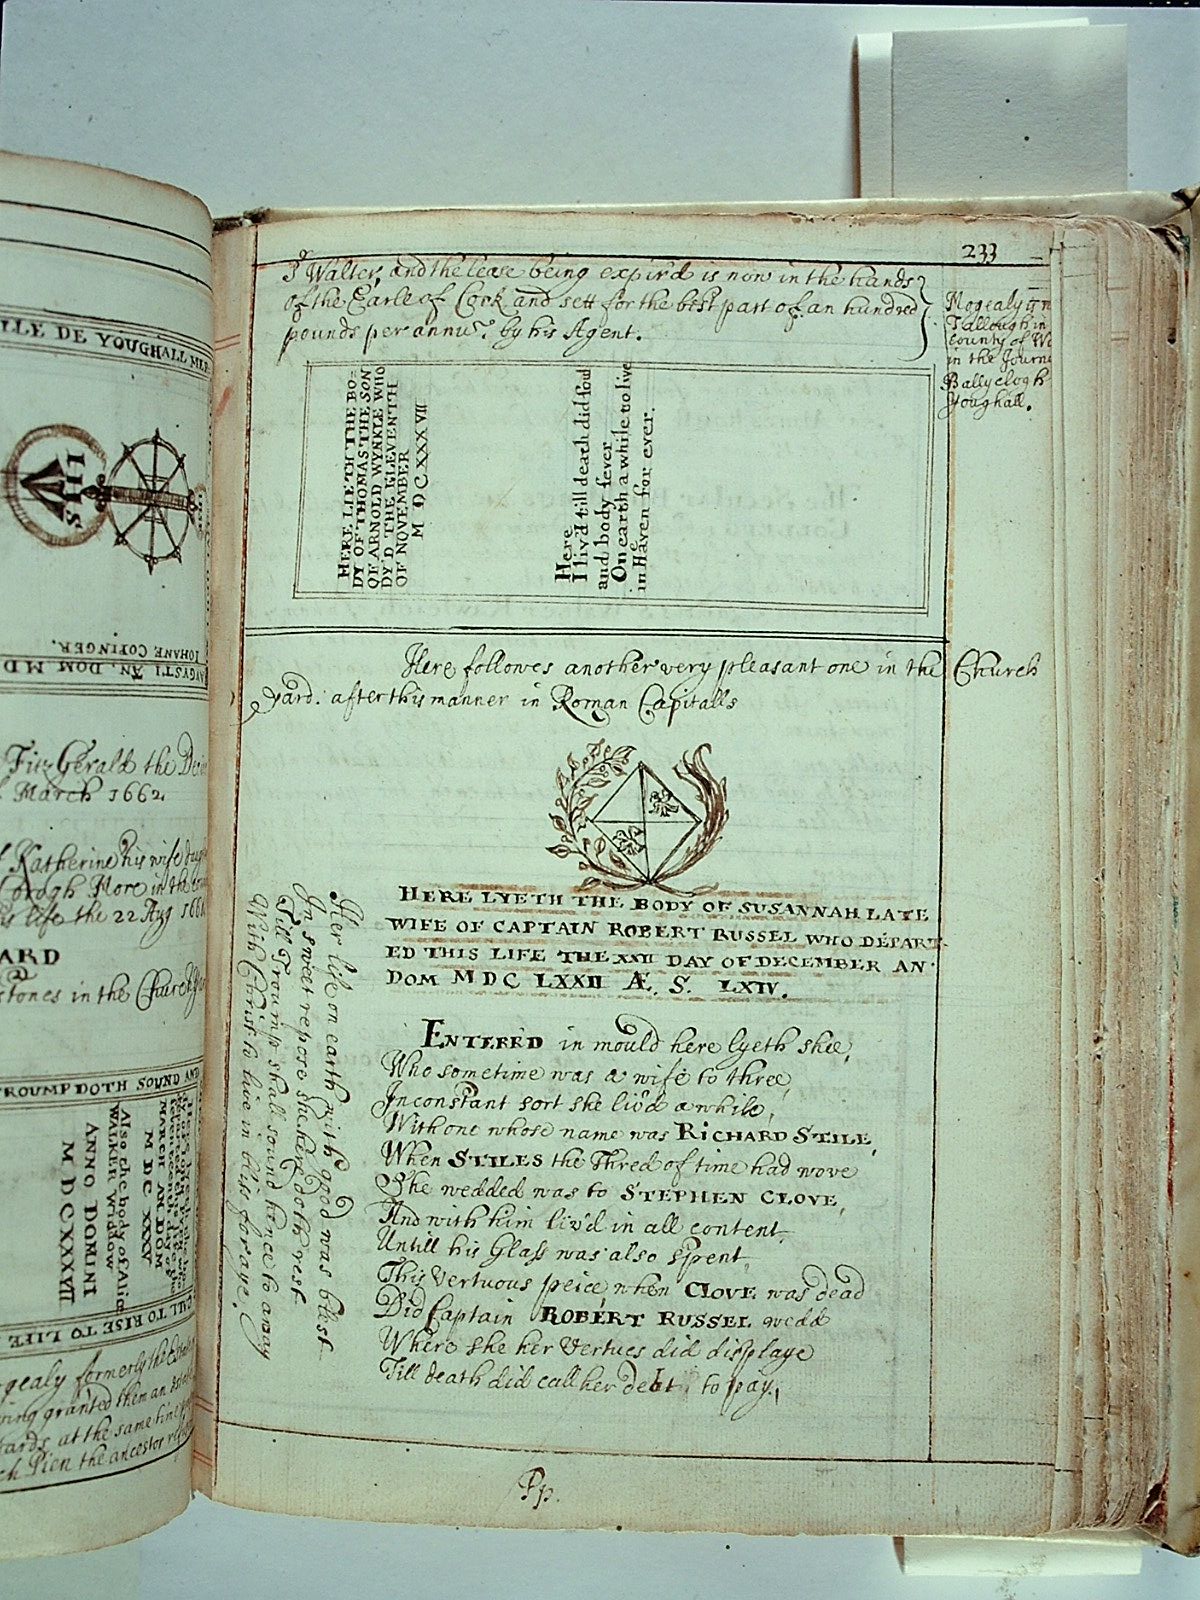 233
Sr Walter, and the lease being expir'd is now in the hands
of the Earle of Cork and sett for the best part of an hundred
pounds per annu~. by his Agent.
Mogealy in
Tallough in
County of
in the Journ
Ballyclogh
Youghall.
HERE LIETH THE BO-
DY OF THOMAS THE SON
OF ARNOLD WYNKLE WHO
DY'D THE ELEVENTH
OF NOVEMBER
M DC XXX VII
Here
I liv'd till death did
and body fever
On earth a while to live
in Heaven for ever.
Here followes another very pleasant one in the Church
yard. after this manner in Roman Capitalls
HERE LYETH THE BODY OF SUSANNAH LATE
WIFE OF CAPTAIN ROBERT RUSSEL WHO DEPART
ED THIS LIFE THE XXII DAY OF DECEMBER AN.
DOM MDC LXXII Æ. S. LXIV.
ENTERR'D in mould here lyeth shee,
Who sometime was a wife to three,
In constant sort she liv'd a while,
With one whose name was RICHARD STILE,
When STILES the Thred of time had wove
She wedded was to STEPHEN CLOVE,
And with him liv'd in all content,
Untill his Glass was also spent,
This vertuous peice when CLOVE was dead
Did Captain ROBERT RUSSEL wedd
Where she her Vertues did displaye
Till death did call her debt to pay,
Her life on earth with good was blest
In sweet repose she here doth rest
Till Troump shall sound hence to away
With Christ to live in bliss for aye.
Pp.
ILLE DE YOUGHALL
IHS
IOHANE COPINGER.
AVGVSTI AN. DOM MD
Fitz Gerald the
March 1662.
Katherine his wife
More in the
life the 22 Aug
ARD
stones in the Church
TROUMP DOTH SOUND AND
MARCH AN. DOM
M DC XXXV
Also the body of Alice
WALKER Widdow
ANNO DOMINI
M DC XXXVII
CALL TO RISE TO LIFE
gealy formerly the
being granted them an
at the same time
Pien the ancestor